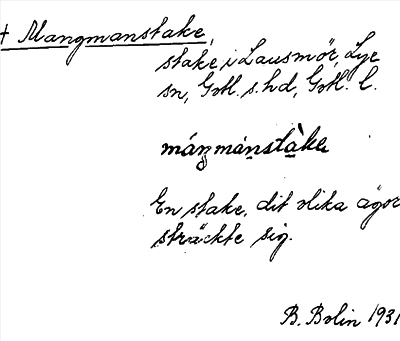 + Mangmanstake,
stake i Lausmör, Lye
sn, Gotl. s. hd, Gotl. l.
máŋmánstàke
En stake, dit olika ägor
sträckte sig.
B. Bolin 1931